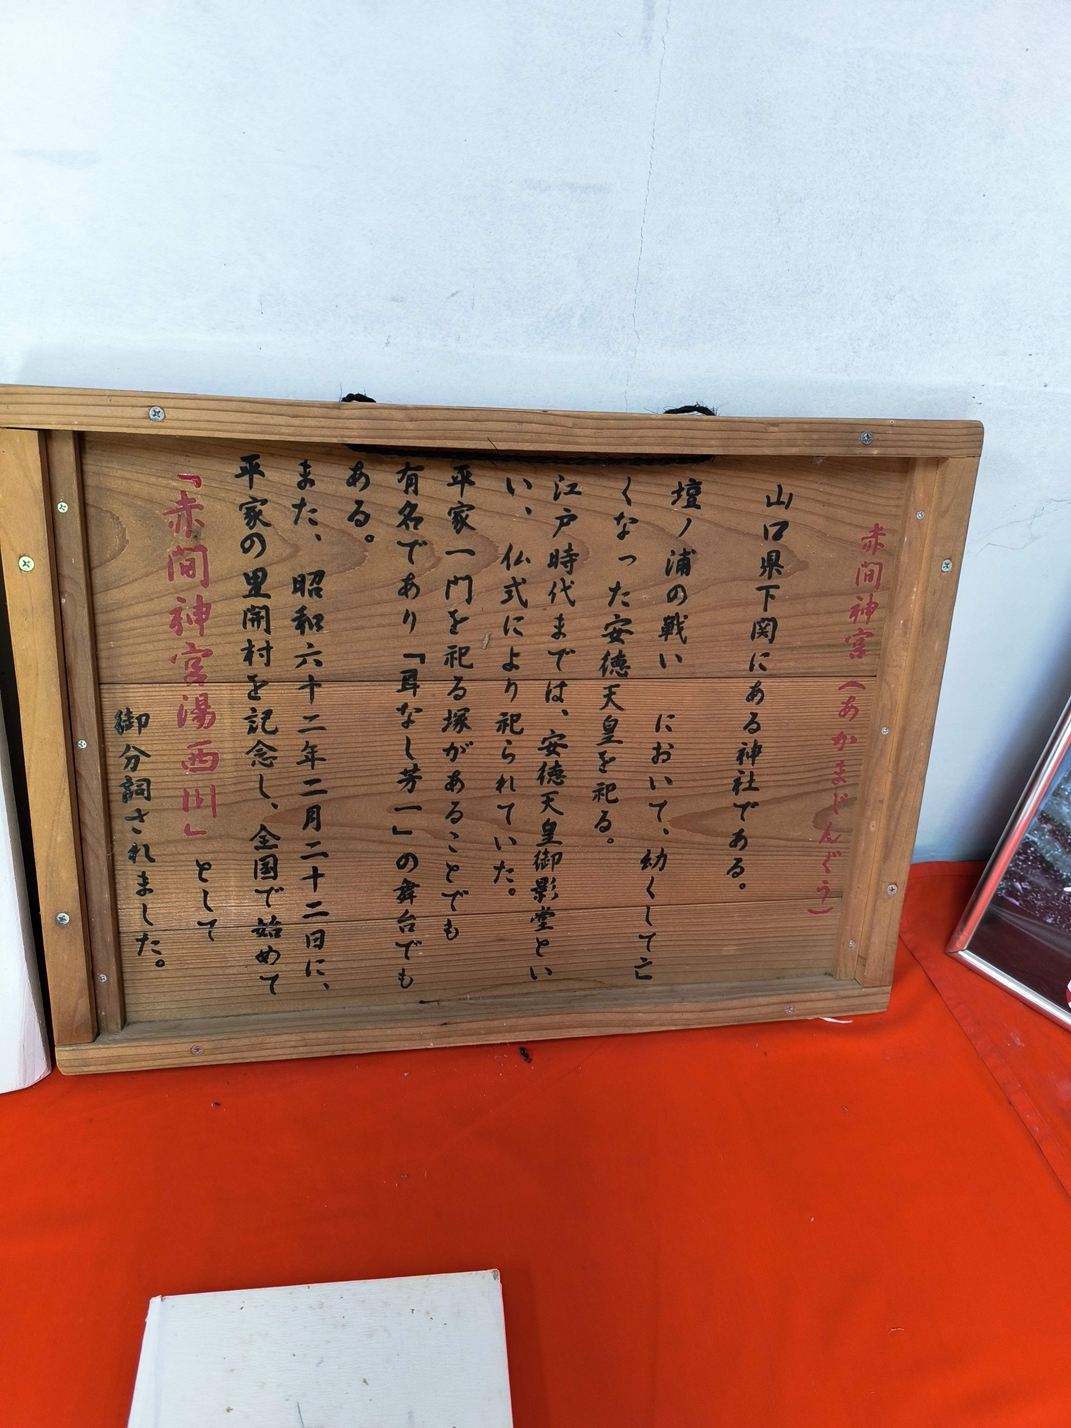 赤間神宮(あかまじんぐう)
山口県下関にある神社である。
壇ノ浦の戦い において、幼くして亡
くなった安徳天皇を祀る。
江戸時代までは、安徳天皇御影堂とい
い、仏式により祀られていた。
平家一門を祀る塚があることでも
有名であり「耳なし芳一」の舞台でも
ある。
また、昭和六十二年二月二十二日に、
平家の里開村を記念し、全国で始めて
「赤間神宮湯西川」として
御分詞されました。